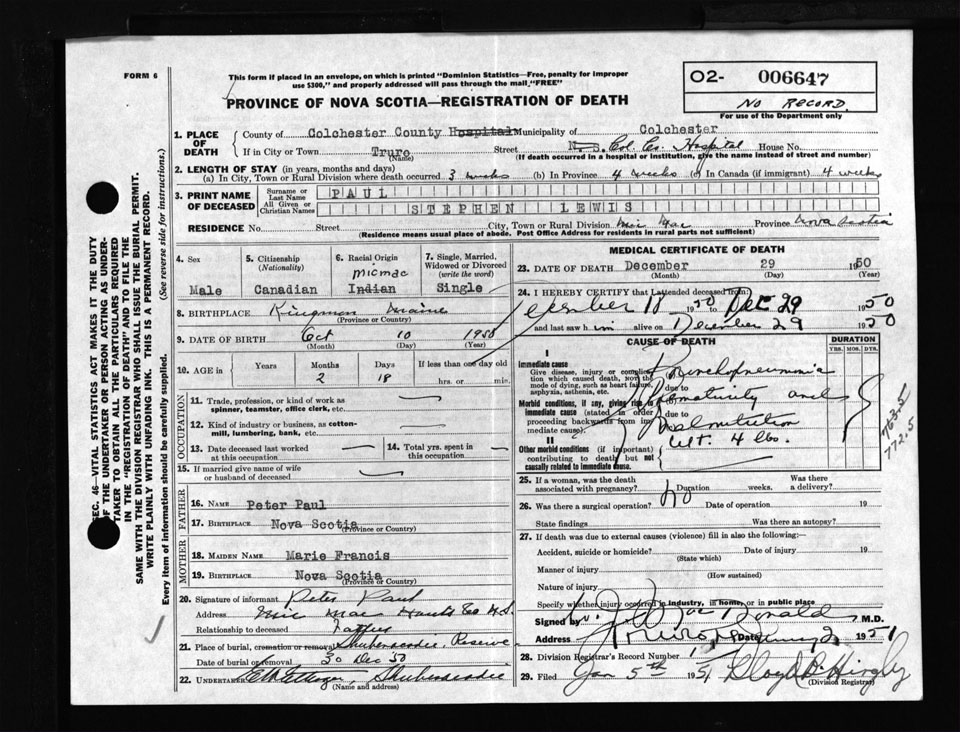 FORM 6
This form if placed in an envelope, on which is printed "Dominion Statistics—Free, penalty for improper
use $300," and properly addressed will pass through the mail "FREE"
PROVINCE OF NOVA SCOTIA—REGISTRATION OF DEATH
O2- 006647
NO RECORD.
For use of the Department only
SEC. 46—VITAL STATISTICS ACT MAKES IT THE DUTY
OF THE UNDERTAKER OR PERSON ACTING AS UNDER-
TAKER TO OBTAIN ALL THE PARTICULARS REQUIRED
IN THE "REGISTRATION OF DEATH" AND TO FILE THE
SAME WITH THE DIVISION REGISTRAR WHO SHALL ISSUE THE BURIAL PERMIT.
WRITE PLAINLY WITH UNFADING INK. THIS IS A PERMANENT RECORD.
Every item of information should be carefully supplied. (See reverse side for instructions.)
1. PLACE OF DEATH
County of Colchester County Hospital Municipality of Colchester
If in City or Town Truro (Name) Street N. S. Col. Co. Hospital House No.
(If death occurred in a hospital or institution, give the name instead of street and number)
2. LENGTH OF STAY (in years, months and days)
(a) In City, Town or Rural Division where death occurred 3 weeks (b) In Province 4 weeks (c) In Canada (if immigrant) 4 weeks
3. PRINT NAME OF DECEASED
Surname or Last Name PAUL
All Given or Christian Names STEPHEN LEWIS
RESIDENCE No. Street City, Town or Rural Division Mic Mac Province Nova Scotia
(Residence means usual place of abode. Post Office Address for residents in rural parts not sufficient)
4. Sex
Male
5. Citizenship (Nationality)
Canadian
6. Racial Origin
micmac
Indian
7. Single, Married, Widowed or Divorced (write the word)
Single
8. BIRTHPLACE Kingman Maine
(Province or Country)
9. DATE OF BIRTH Oct 10 1950
(Month) (Day) (Year)
10. AGE in Years Months Days If less than one day old
2 18 hrs. or min.
OCCUPATION
11. Trade, profession, or kind of work as
spinner, teamster, office clerk, etc.
12. Kind of industry or business, as cotton-
mill, lumbering, bank, etc.
13. Date deceased last worked at this occupation
14. Total yrs. spent in this occupation
15. If married give name of wife
or husband of deceased
FATHER
16. NAME Peter Paul
17. BIRTHPLACE Nova Scotia
(Province or Country)
MOTHER
18. MAIDEN NAME Marie Francis
19. BIRTHPLACE Nova Scotia
(Province or Country)
20. Signature of informant Peter Paul
Address Mic Mac Hants Co N.S.
Relationship to deceased Father
21. Place of burial, cremation or removal Shubenacadie, Reserve
Date of burial or removal 30 Dec 50
22. UNDERTAKER Shubenacadie
(Name and address)
MEDICAL CERTIFICATE OF DEATH
23. DATE OF DEATH December 29 1950
(Month) (Day) (Year)
24. I HEREBY CERTIFY that I attended deceased from:
December 18 1950 to Dec 29 1950
and last saw him alive on December 29 1950
CAUSE OF DEATH
DURATION
YRS. MOS. DYS.
I
Immediate cause
Give disease, injury or complication which caused death, not the mode of dying, such as heart failure, asphyxia, asthenia, etc.
Bronchopneumonia
due to
Morbid conditions, if any, giving rise to immediate cause (stated in order proceeding backwards from immediate cause).
Prematurity and
due to
Malnutrition
wt. 4 lbs.
II
Other morbid conditions (if important) contributing to death but not causally related to immediate cause.
763.5
772.5
25. If a woman, was the death associated with pregnancy? Duration weeks. Was there a delivery?
26. Was there a surgical operation? No Date of operation 19
State findings Was there an autopsy?
27. If death was due to external causes (violence) fill in also the following:—
Accident, suicide or homicide? Date of injury 19
(State which)
Manner of injury
(How sustained)
Nature of injury
Specify whether injury occurred in industry, in home, or in public place
Signed by MacDonald M.D.
Address Truro Date 1951
28. Division Registrar's Record Number
29. Filed Jan 5th 1951 Lloyd
(Division Registrar)